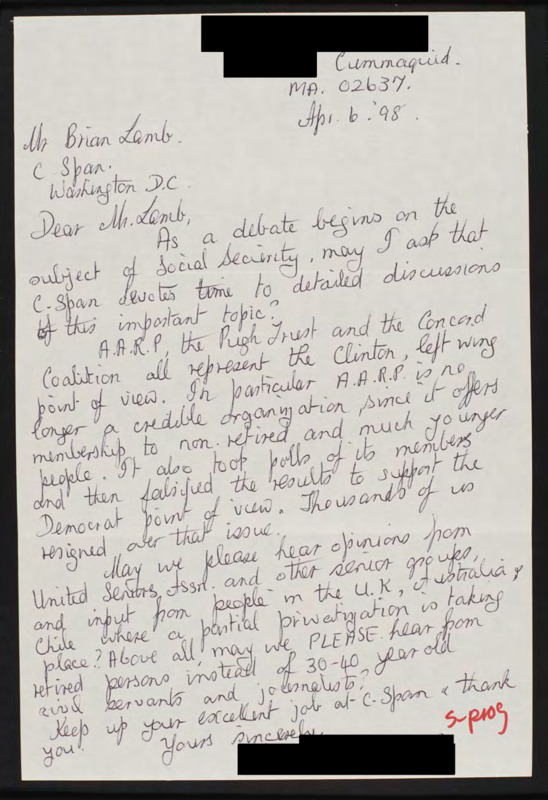 Cummaquid.
MA. 02637.
Apr. 6. '98.
Mr Brian Lamb.
C Span.
Washington D.C.
Dear Mr. Lamb,
As a debate begins on the
subject of Social Security, may I ask that
C. Span devotes time to detailed discussions
of this important topic?
A.A.R.P, the Pugh Trust and the Concord
Coalition all represent the Clinton, left wing
point of view. In particular A.A.R.P. is no
longer a credible organization, since it offers
membership to non. retired and much younger
people. It also took polls of its members
and then falsified the results to support the
Democrat point of view. Thousands of us
resigned over that issue.
May we please hear opinions from
United Seniors, Assn. and other senior groups,
and input from people in the U.K, Australia &
Chile where a partial privatization is taking
place? Above all, may we PLEASE hear from
retired persons instead of 30-40 year old
civil servants and journalists?
Keep up your excellent job at C. Span & thank
you!
Yours sincerely
s-prog